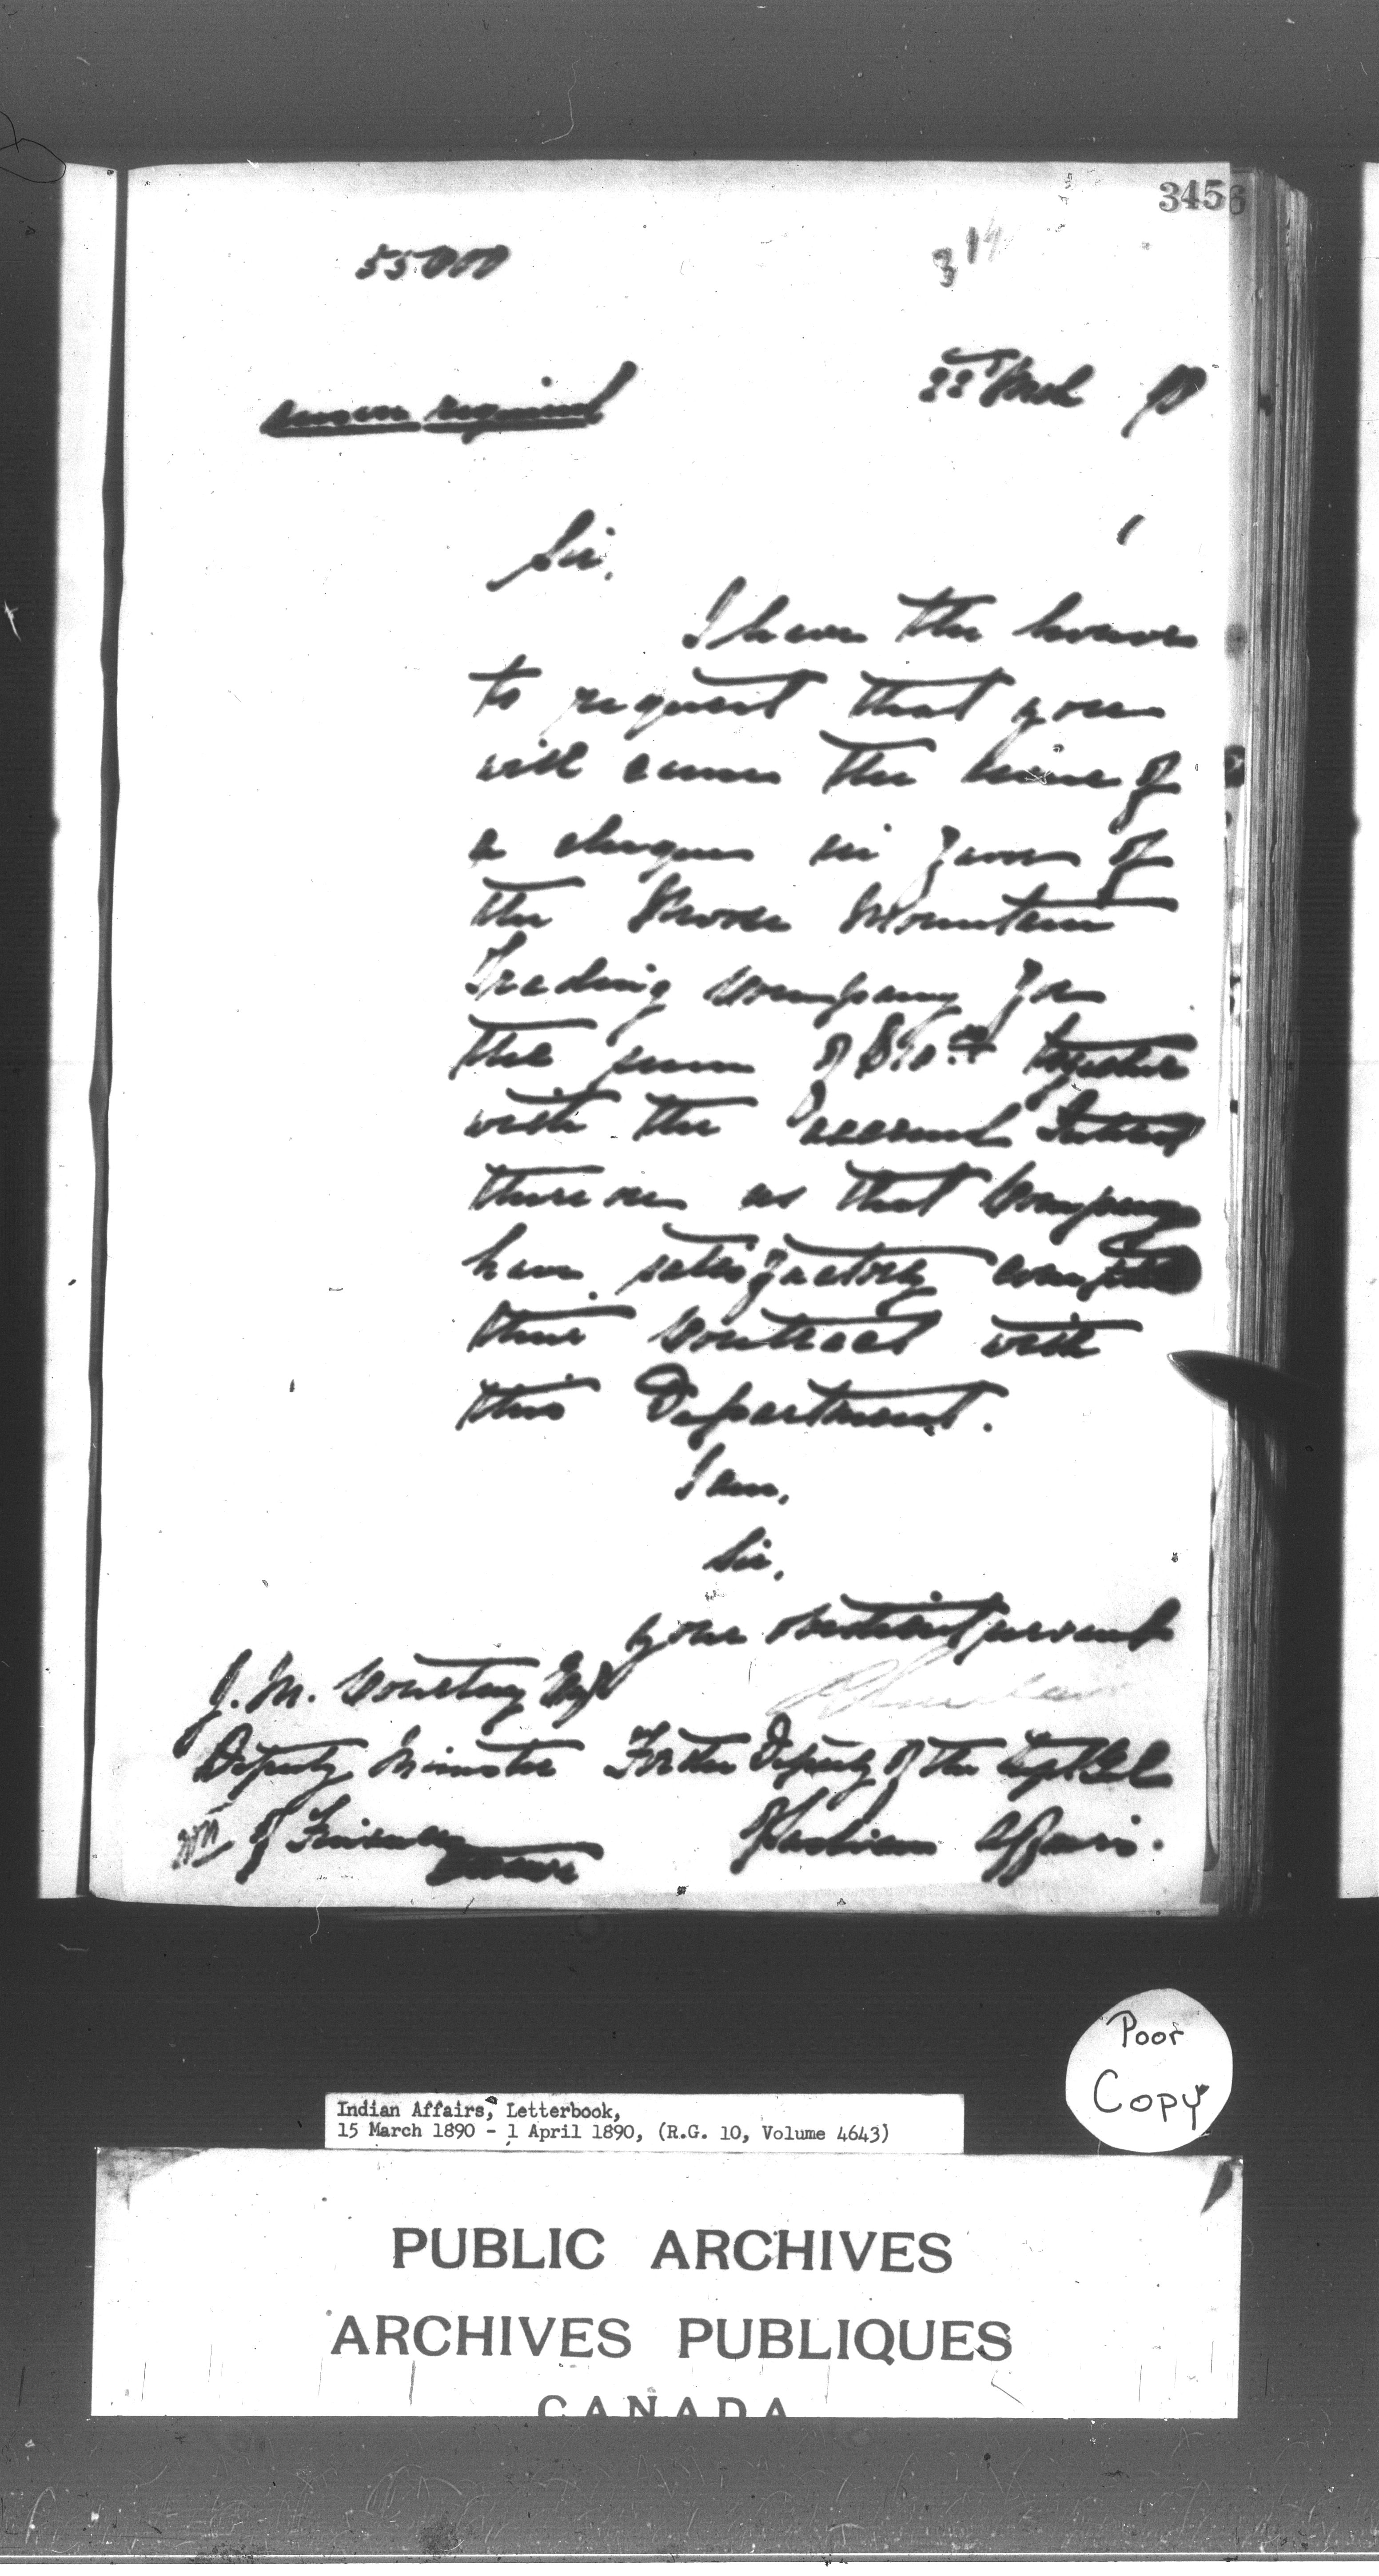 3456
314
55000
22nd Mch 90
answer required
Sir,
I have the honor
to request that you
will cause the issue of
a cheque in favor of
the Moose Mountain
Trading Company for
the sum of
together
with the accrued Interest
thereon as that Company
have satisfactory completed
their Contract with
this Department.
I am,
Sir,
your obedient servant
J. M. Courtney Esqr
Deputy Minister
of Finance
For the Deputy of the Supt Genl
of Indian Affairs.
Poor
Copy
Indian Affairs, Letterbook,
15 March 1890 - 1 April 1890, (R.G. 10, Volume 4643)
PUBLIC ARCHIVES
ARCHIVES PUBLIQUES
CANADA